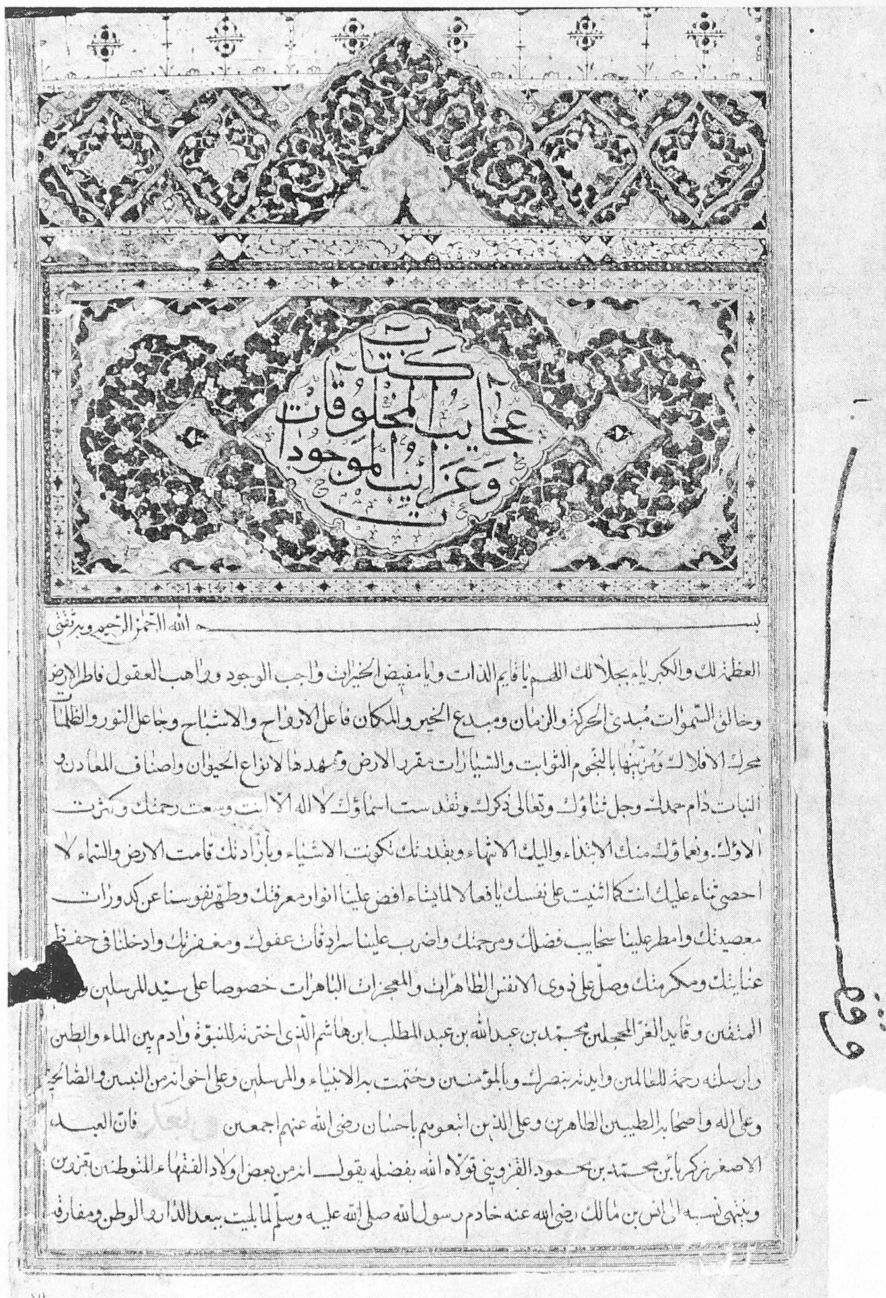 كتاب
عجايب المخلوقات
وغرائب الموجودات
بسم الله الرحمن الرحيم وبه ثقتي
العظمة لك والكبرياء بجلالك اللهم يا قايم الذات ويا مفيض الخيرات واجب الوجود وواهب العقول فاطر الارض
وخالق السموات مبدئ الحركة والزمان ومبدع الخير والمكان فاعل الارواح والاشباح وجاعل النور والظلمات
محرك الافلاك ومزينها بالنجوم الثوابت والسيارات مقرر الارض وممهدها لانواع الحيوان واصناف المعادن و
النبات دام حمدك وجل ثناؤك وتعالى ذكرك وتقدست اسماؤك لا اله الا انت وسعت رحمتك وكثرت
الاؤك ونعماؤك منك الابتداء واليك الانتهاء وبقدرتك تكونت الاشياء وبارادتك قامت الارض والسماء لا
احصى ثناء عليك انت كما اثنيت على نفسك يا فعالا لما يشاء افض علينا انوار معرفتك وطهر نفوسنا عن كدورات
معصيتك وامطر علينا سحايب فضلك ومرحمتك واضرب علينا سرادقات عفوك ومغفرتك وادخلنا فى حفظ
عنايتك ومكرمتك وصل على ذوى الانفس الطاهرات والمعجزات الباهرات خصوصا على سيد المرسلين و
المتقين وقايد الغر المحجلين محمد بن عبد الله بن عبد المطلب ابن هاشم الذى اخترته للنبوة وادم بين الماء والطين
وارسلته رحمة للعالمين وايدته بنصرك وبالمؤمنين وختمت به الانبياء والمرسلين وعلى اخوانه من النبيين والصالحين
وعلى اله واصحابه الطيبين الطاهرين وعلى الذين اتبعوهم باحسان رضى الله عنهم اجمعين وبعد فان العبد
الاصغر زكريا بن محمد بن محمود القزوينى تولاه الله بفضله يقول انه من بعض اولاد الفقهاء المتوطنين بقزوين
وينتهى نسبه الى انس بن مالك رضى الله عنه خادم رسول الله صلى الله عليه وسلم لما بليت ببعد الدار والوطن ومفارقة
وقف